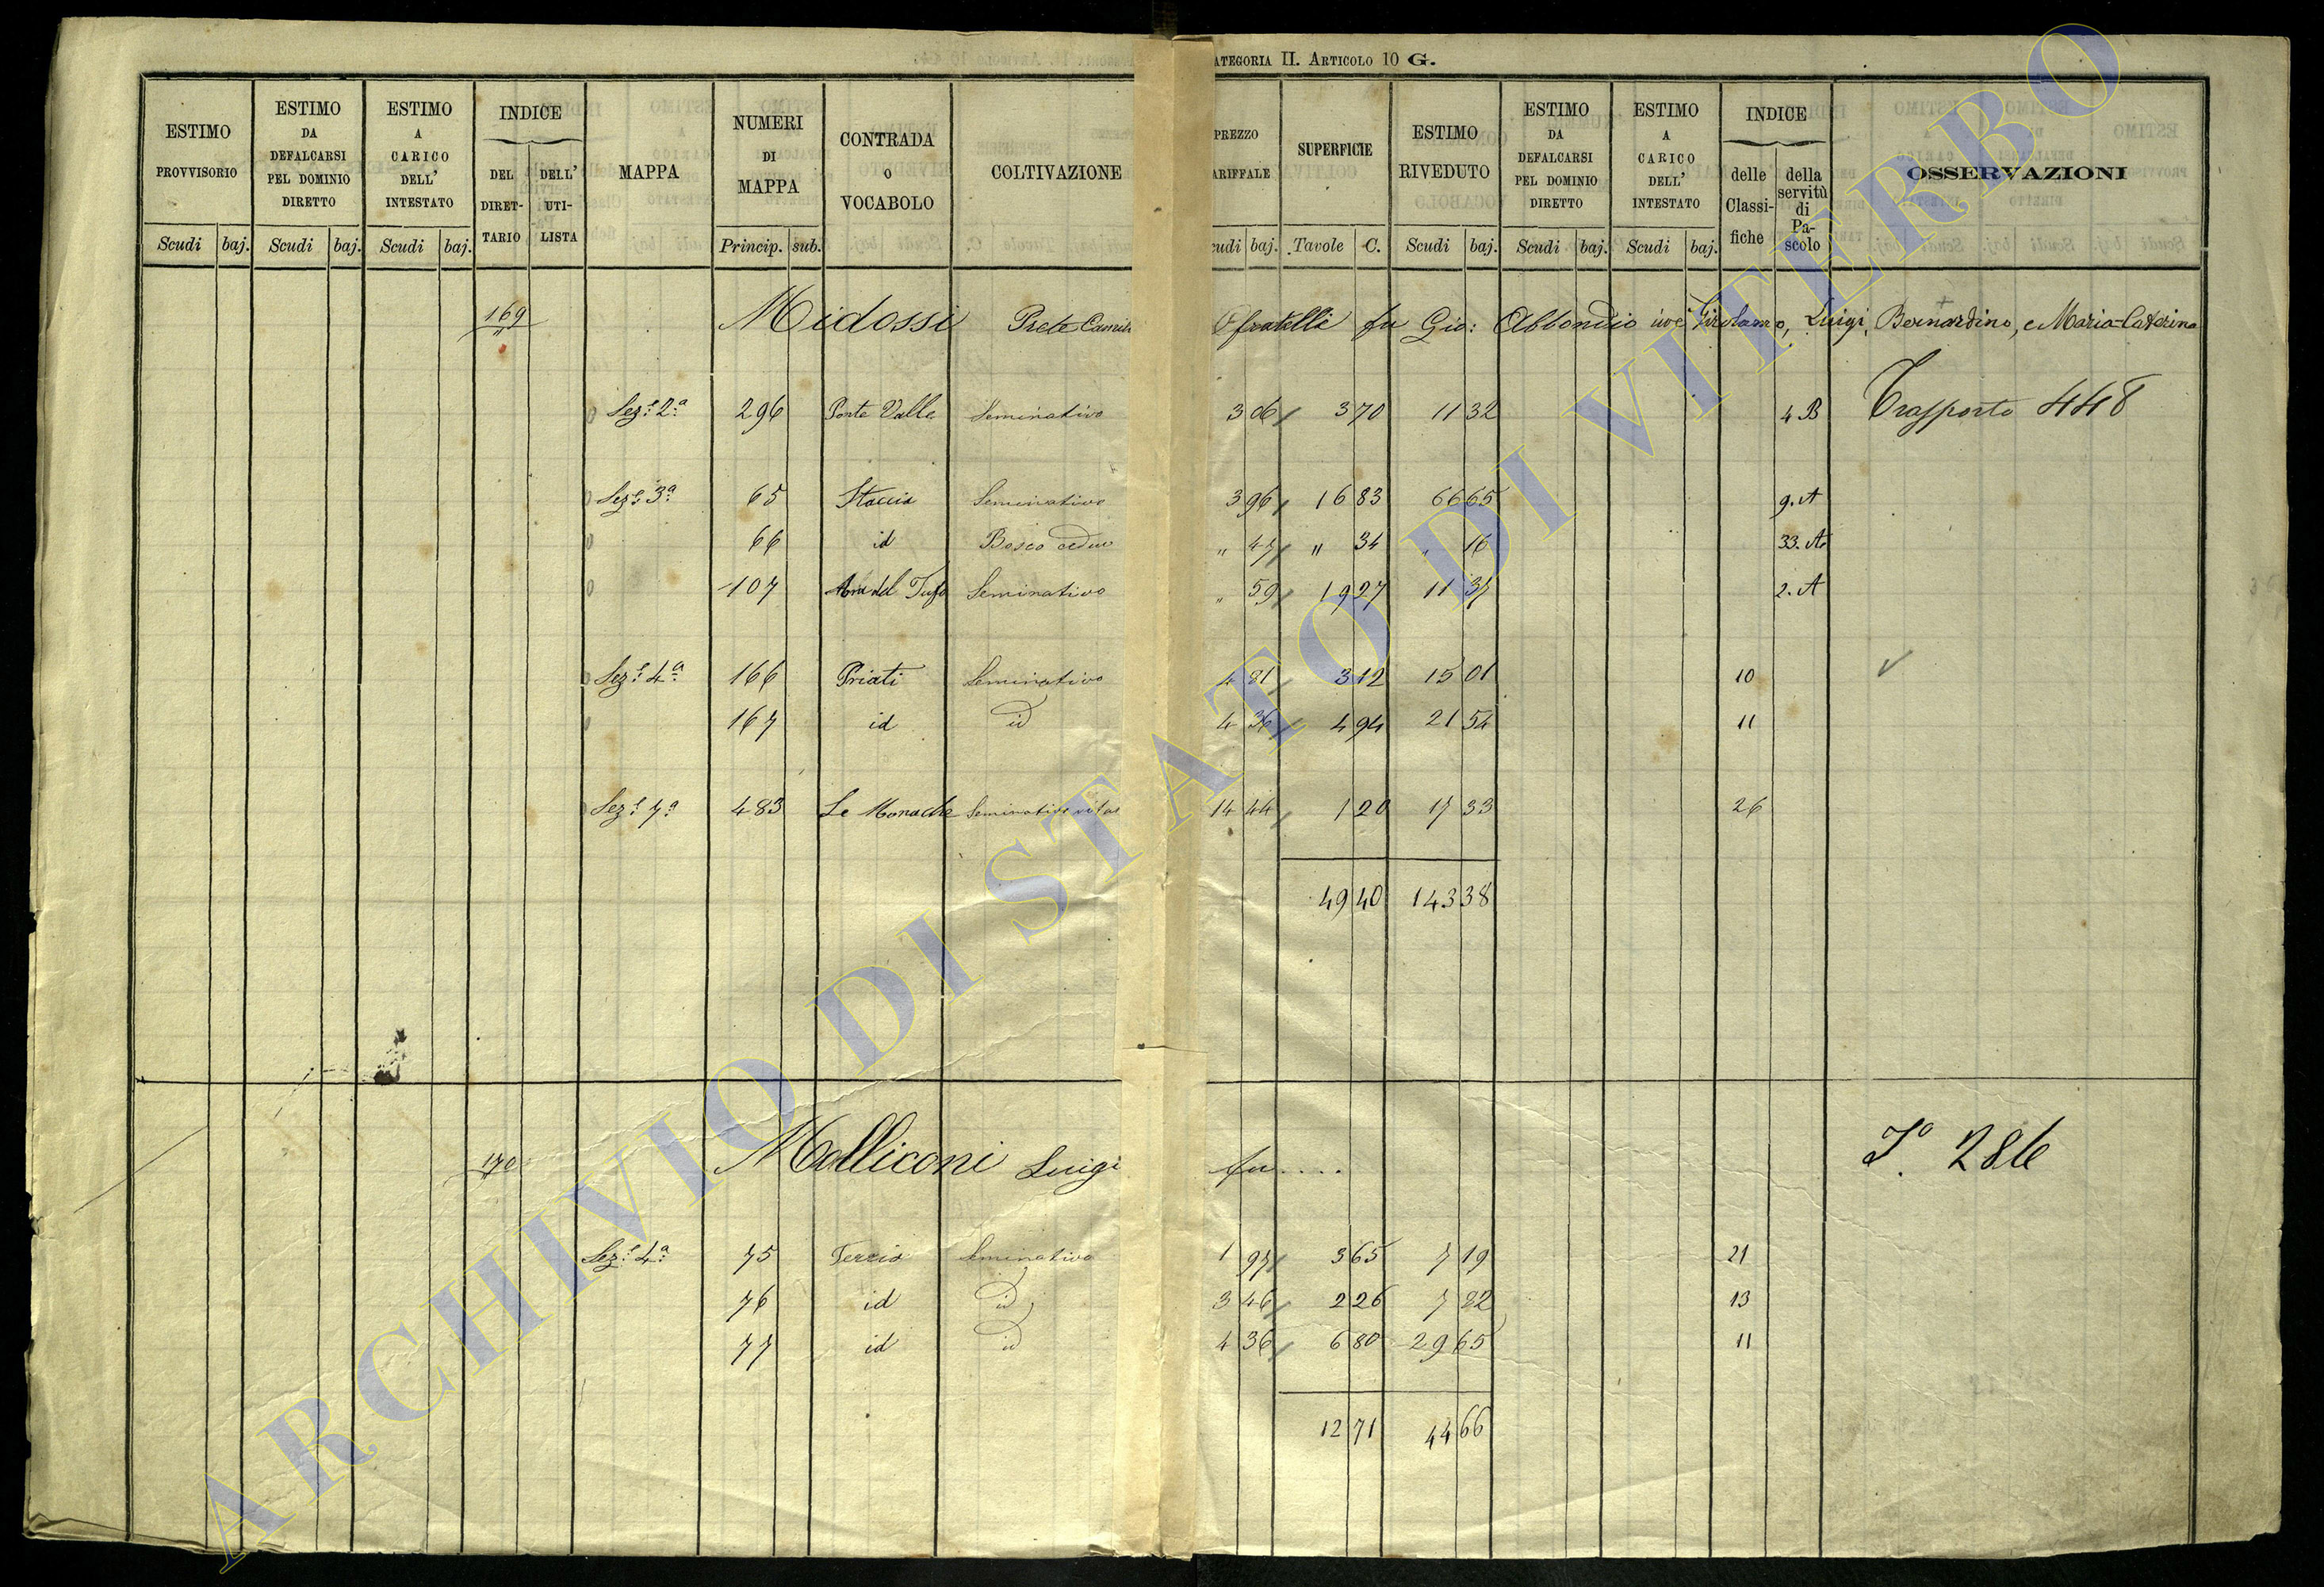 CATEGORIA II. ARTICOLO 10 G.
ESTIMO PROVVISORIO Scudi baj.
ESTIMO DA DEFALCARSI PEL DOMINIO DIRETTO Scudi baj.
ESTIMO A CARICO DELL' INTESTATO Scudi baj.
INDICE DEL DIRET-TARIO DELL' UTI-LISTA
MAPPA
NUMERI DI MAPPA Princip. sub.
CONTRADA O VOCABOLO
COLTIVAZIONE
PREZZO ARIFFALE cudi baj.
SUPERFICIE Tavole C.
ESTIMO RIVEDUTO Scudi baj.
ESTIMO DA DEFALCARSI PEL DOMINIO DIRETTO Scudi baj.
ESTIMO A CARICO DELL' INTESTATO Scudi baj.
INDICE delle Classi-fiche della servitù di Pa-scolo
OSSERVAZIONI
169 Midossi Prete Camil E fratelli fu Gio: Abbondio Girolamo, Luigi, Bernardino, e Maria-Caterina
Sez.e 2.a 296 Ponte Valle Seminativo 3 06 3 70 11 32 4 B Trasporto 448
Sez.e 3.a 65 Staccia Seminativo 3 96 16 83 66 65 9. A
66 id Bosco ceduo " 47 " 34 " 16 33. A
107 del Tufo Seminativo " 59 19 27 11 37 2. A
Sez.e 4.a 166 Priati Seminativo 4 81 3 12 15 01 10
167 id id 4 36 4 94 21 54 11
Sez.e 7.a 483 Le Monache Seminativo vitat 14 44 1 20 17 33 26
49 40 143 38
170 Molliconi Luigi fu.... T.o 286
Sez.e 4.a 75 Tercio Seminativo 1 97 3 65 7 19 21
76 id id 3 46 2 26 7 82 13
77 id id 4 36 6 80 29 65 11
12 71 44 66
ARCHIVIO DI STATO DI VITERBO